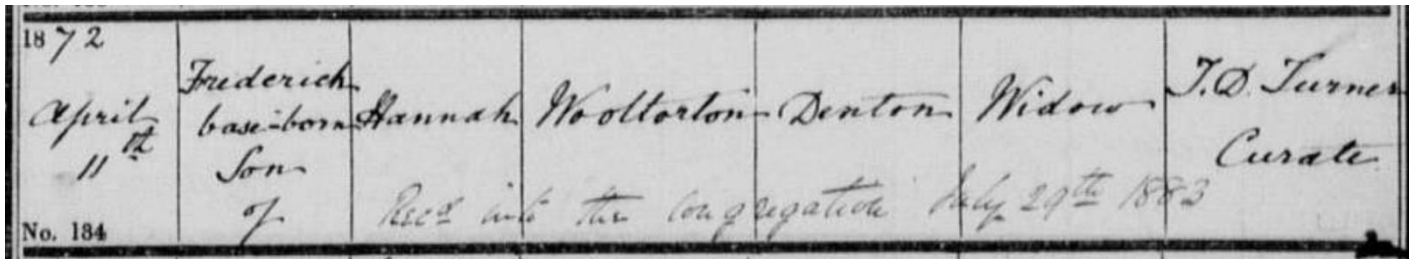 1872
April
11th
No. 184
Frederick
base-born
Son
of
Hannah
Wooltorton
Denton
Widow
T.D. Turner
Curate
Recd into the congregation July 29th 1883